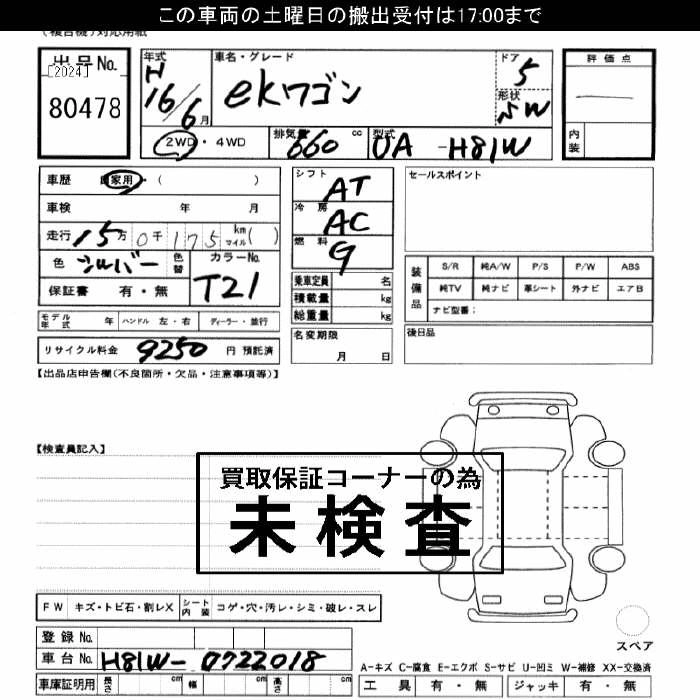 この車両の土曜日の搬出受付は17:00まで
(複合機)対応用紙
出品No.
[2024]
80478
年式
H
16/6月
車名・グレード
ekワゴン
ドア
5
形状
SW
評価点
内装
2WD・4WD
排気量
660 cc
型式
UA-H81W
車歴 自家用・( )
車検 年 月
走行 15万0千175 km マイル( )
色 シルバー
色替
カラーNo.
T21
保証書 有・無
シフト
AT
冷房
AC
燃料
G
乗車定員 名
積載量 kg
総重量 kg
名変期限
月 日
セールスポイント
装備品
S/R 純A/W P/S P/W ABS
純TV 純ナビ 革シート 外ナビ エアB
ナビ型番:
後日品
モデル年式 年 ハンドル 左・右 ディーラー・並行
リサイクル料金 9250 円 預託済
【出品店申告欄(不良箇所・欠品・注意事項等)】
【検査員記入】
買取保証コーナーの為
未検査
FW キズ・トビ石・割レX
シート内装 コゲ・穴・汚レ・シミ・破レ・スレ
登録No.
車台No. H81W-0722018
車庫証明用 長さ cm 幅 cm 高さ cm
スペア
A-キズ C-腐食 E-エクボ S-サビ U-凹ミ W-補修 XX-交換済
工具 有・無 ジャッキ 有・無